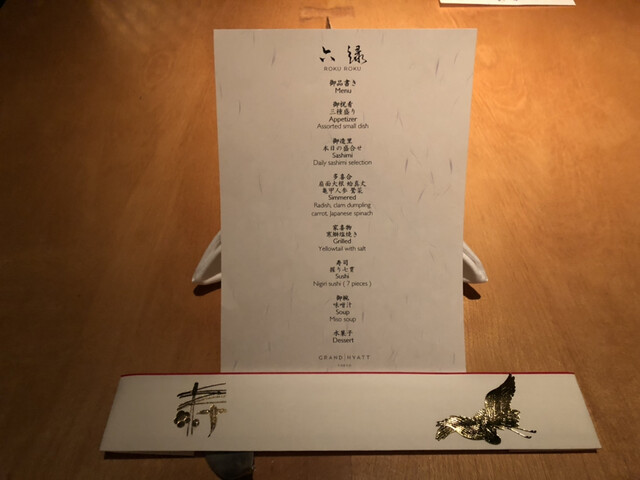 六緑
ROKU ROKU
御品書き
Menu
御祝肴
三種盛り
Appetizer
Assorted small dish
御造里
本日の盛合せ
Sashimi
Daily sashimi selection
多喜合
亀甲人参 鶯菜
Simmered
Radish, clam dumpling
carrot, Japanese spinach
家喜物
寒鰤塩焼き
Grilled
Yellowtail with salt
寿司
握り七貫
Sushi
Nigiri sushi ( 7 pieces )
御椀
味噌汁
Soup
Miso soup
水菓子
Dessert
GRAND HYATT
寿